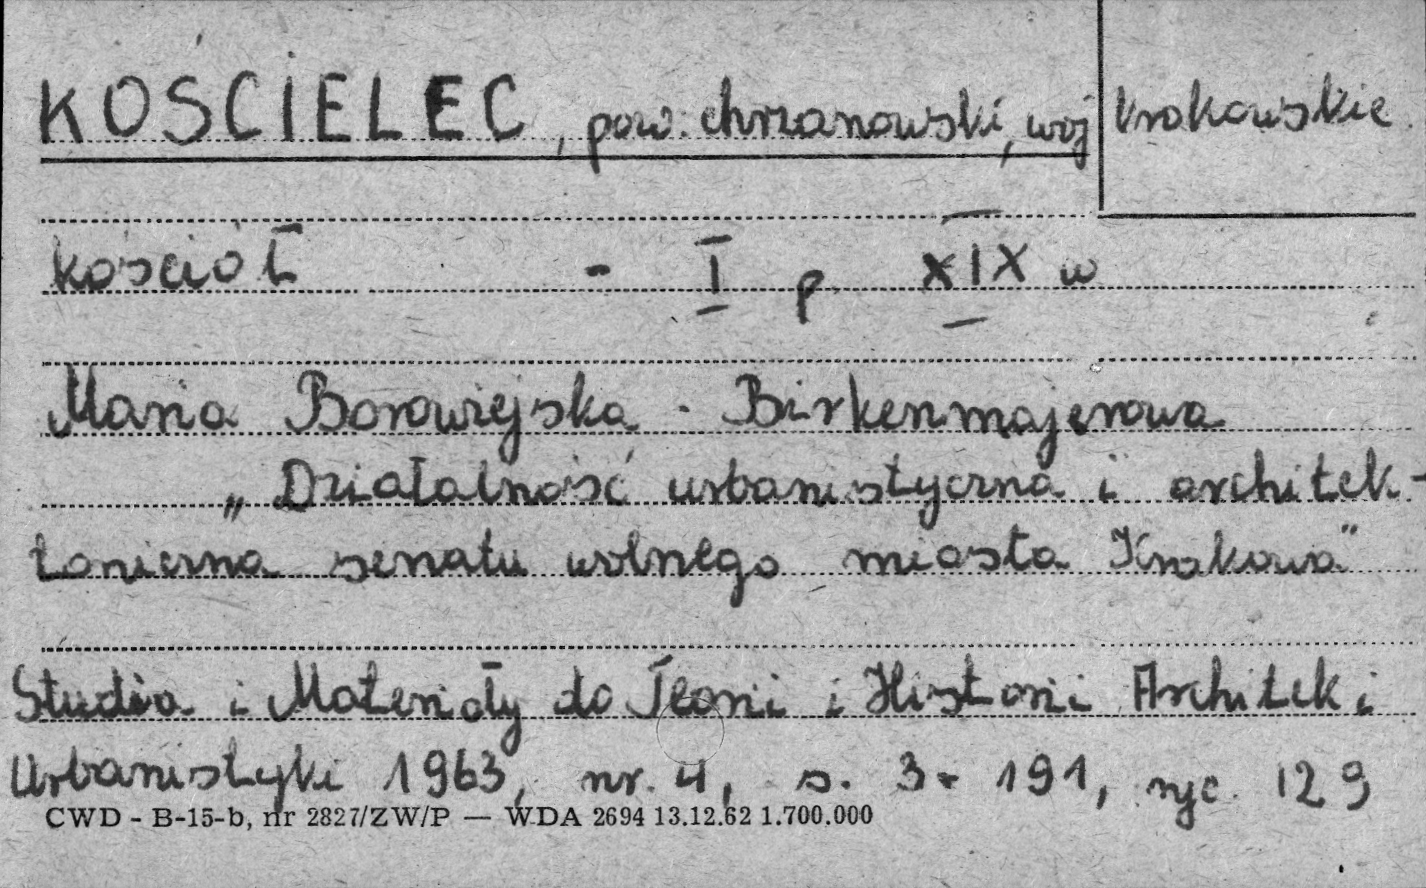 KOŚCIELEC, pow. chrzanowski, woj krakowskie
kościół - I p. XIX w
Maria Borowiejska - Birkenmajerowa
„Działalność urbanistyczna i architek-
toniczna senatu wolnego miasta Krakowa"
Studia i Materiały do Teorii i Historii Architek i
Urbanistyki 1963, nr. 4, s. 3-191, ryc. 129
CWD - B-15-b, nr 2827/ZW/P — WDA 2694 13.12.62 1.700.000